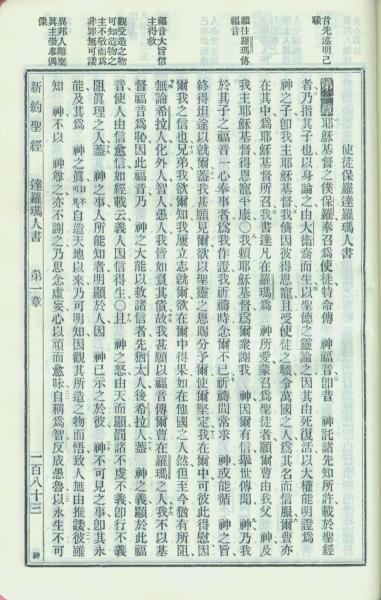 使徒保羅達羅瑪人書
首先達明己職
第一章 耶穌基督之僕保羅奉召爲使徒特命傳 神福音卽昔 神託諸先知所許載於聖經
者乃指其子也以身論之由大衛裔而生以聖德之靈論之因其由死復活以大權能明證爲
神之子卽我主耶穌基督我儕因彼得恩寵且受使徒之職令萬國之人爲其名而信服爾曹亦
在其中爲耶穌基督所召我書達凡在羅瑪爲 神所愛蒙召爲聖徒者願爾曹由我父 神及
願往羅瑪傳福音
我主耶穌基督得恩寵平康〇我賴耶穌基督爲爾衆謝我 神因爾有信舉世傳聞 神乃我
於其子之福音一心奉事者爲我作證我祈禱時念爾不已祈禱間常求 神或能循 神之旨
終得坦途以就爾蓋我甚願見爾欲以聖靈之恩賜分予爾使爾堅定我在爾中可彼此得慰因
爾我之信也兄弟我欲爾知我屢立志就爾欲在爾中得果如在他國之人然但至今猶有所阻
福音大旨信主得救
無論希拉人化外人智人愚人我皆如負其債故我甚願以福音傳爾曹在羅瑪之人我不以基
督福音爲恥因此福音乃 神之大能以救諸信者先猶太人後希拉人蓋 神之義顯於此福
觀受造之物可知造物之主不敬而爲非罪無可諉
音使人由信愈信如經載云義人因信得生〇且 神之怒由天而顯罰諸不虔不義卽行不義
阻眞理之人蓋 神之事人所能知者明顯於人因 神已示之於彼 神不可見之事卽其永
能及其爲 神之眞自造天地以來乃可明知因觀其所造之物而悟致人無由推諉彼雖
異邦人離棄眞主崇奉偶像
知 神不以 神尊之亦不謝之乃思念虛妄心以頑而愈昧自稱爲智反成愚魯以永生不可
新約聖經 達羅瑪人書 第一章 一百八十三